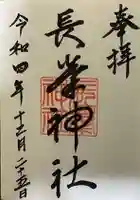 奉拝
長峯神社
令和四年十二月二十五日